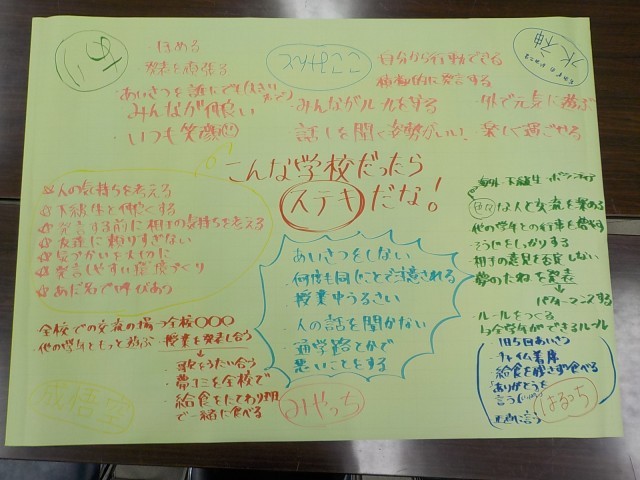 ・ほめる
・発表を頑張る
・あいさつを誰にでも
・みんなが仲良い
・いつも笑顔
ここみんと
自分から行動できる
積極的に発言する
・みんながルールを守る
・話しを聞く姿勢がいい
水神
・外で元気に遊ぶ
・楽しく過ごせる
こんな学校だったら
ステキだな!
☆人の気持ちを考える
☆下級生と仲良くする
☆発言する前に相手の気持ちを考える
☆友達に頼りすぎない
☆発言しやすい環境づくり
☆あだ名で呼び合う
あいさつをしない
・何度も同じことで注意される
・授業中うるさい
・人の話を聞かない
・通学路とかで
悪いことをする
下級生・ボランティア
な人と交流を深める
他の学年との行事を増やす
・そうじをしっかりする
・相手の意見を否定しない
・夢のたねを発表
↓
パフォーマンスする
・ルールをつくる
↳全学年ができるルール
・1日5回あいさつ
・チャイム着席
・給食を残さず食べる
・ありがとうを
言う
正直に言う
はるっち
全校での交流の場→全校〇〇〇
他の学年ともっと遊ぶ・授業を発表し合う
↓
歌をうたい合う
・給食をたてわり班
で一緒に食べる
みやっち
成悟空